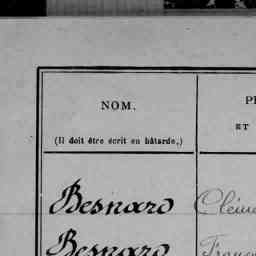 NOM.
(Il doit être écrit en bâtarde.)
ET
Besnard
Besnard